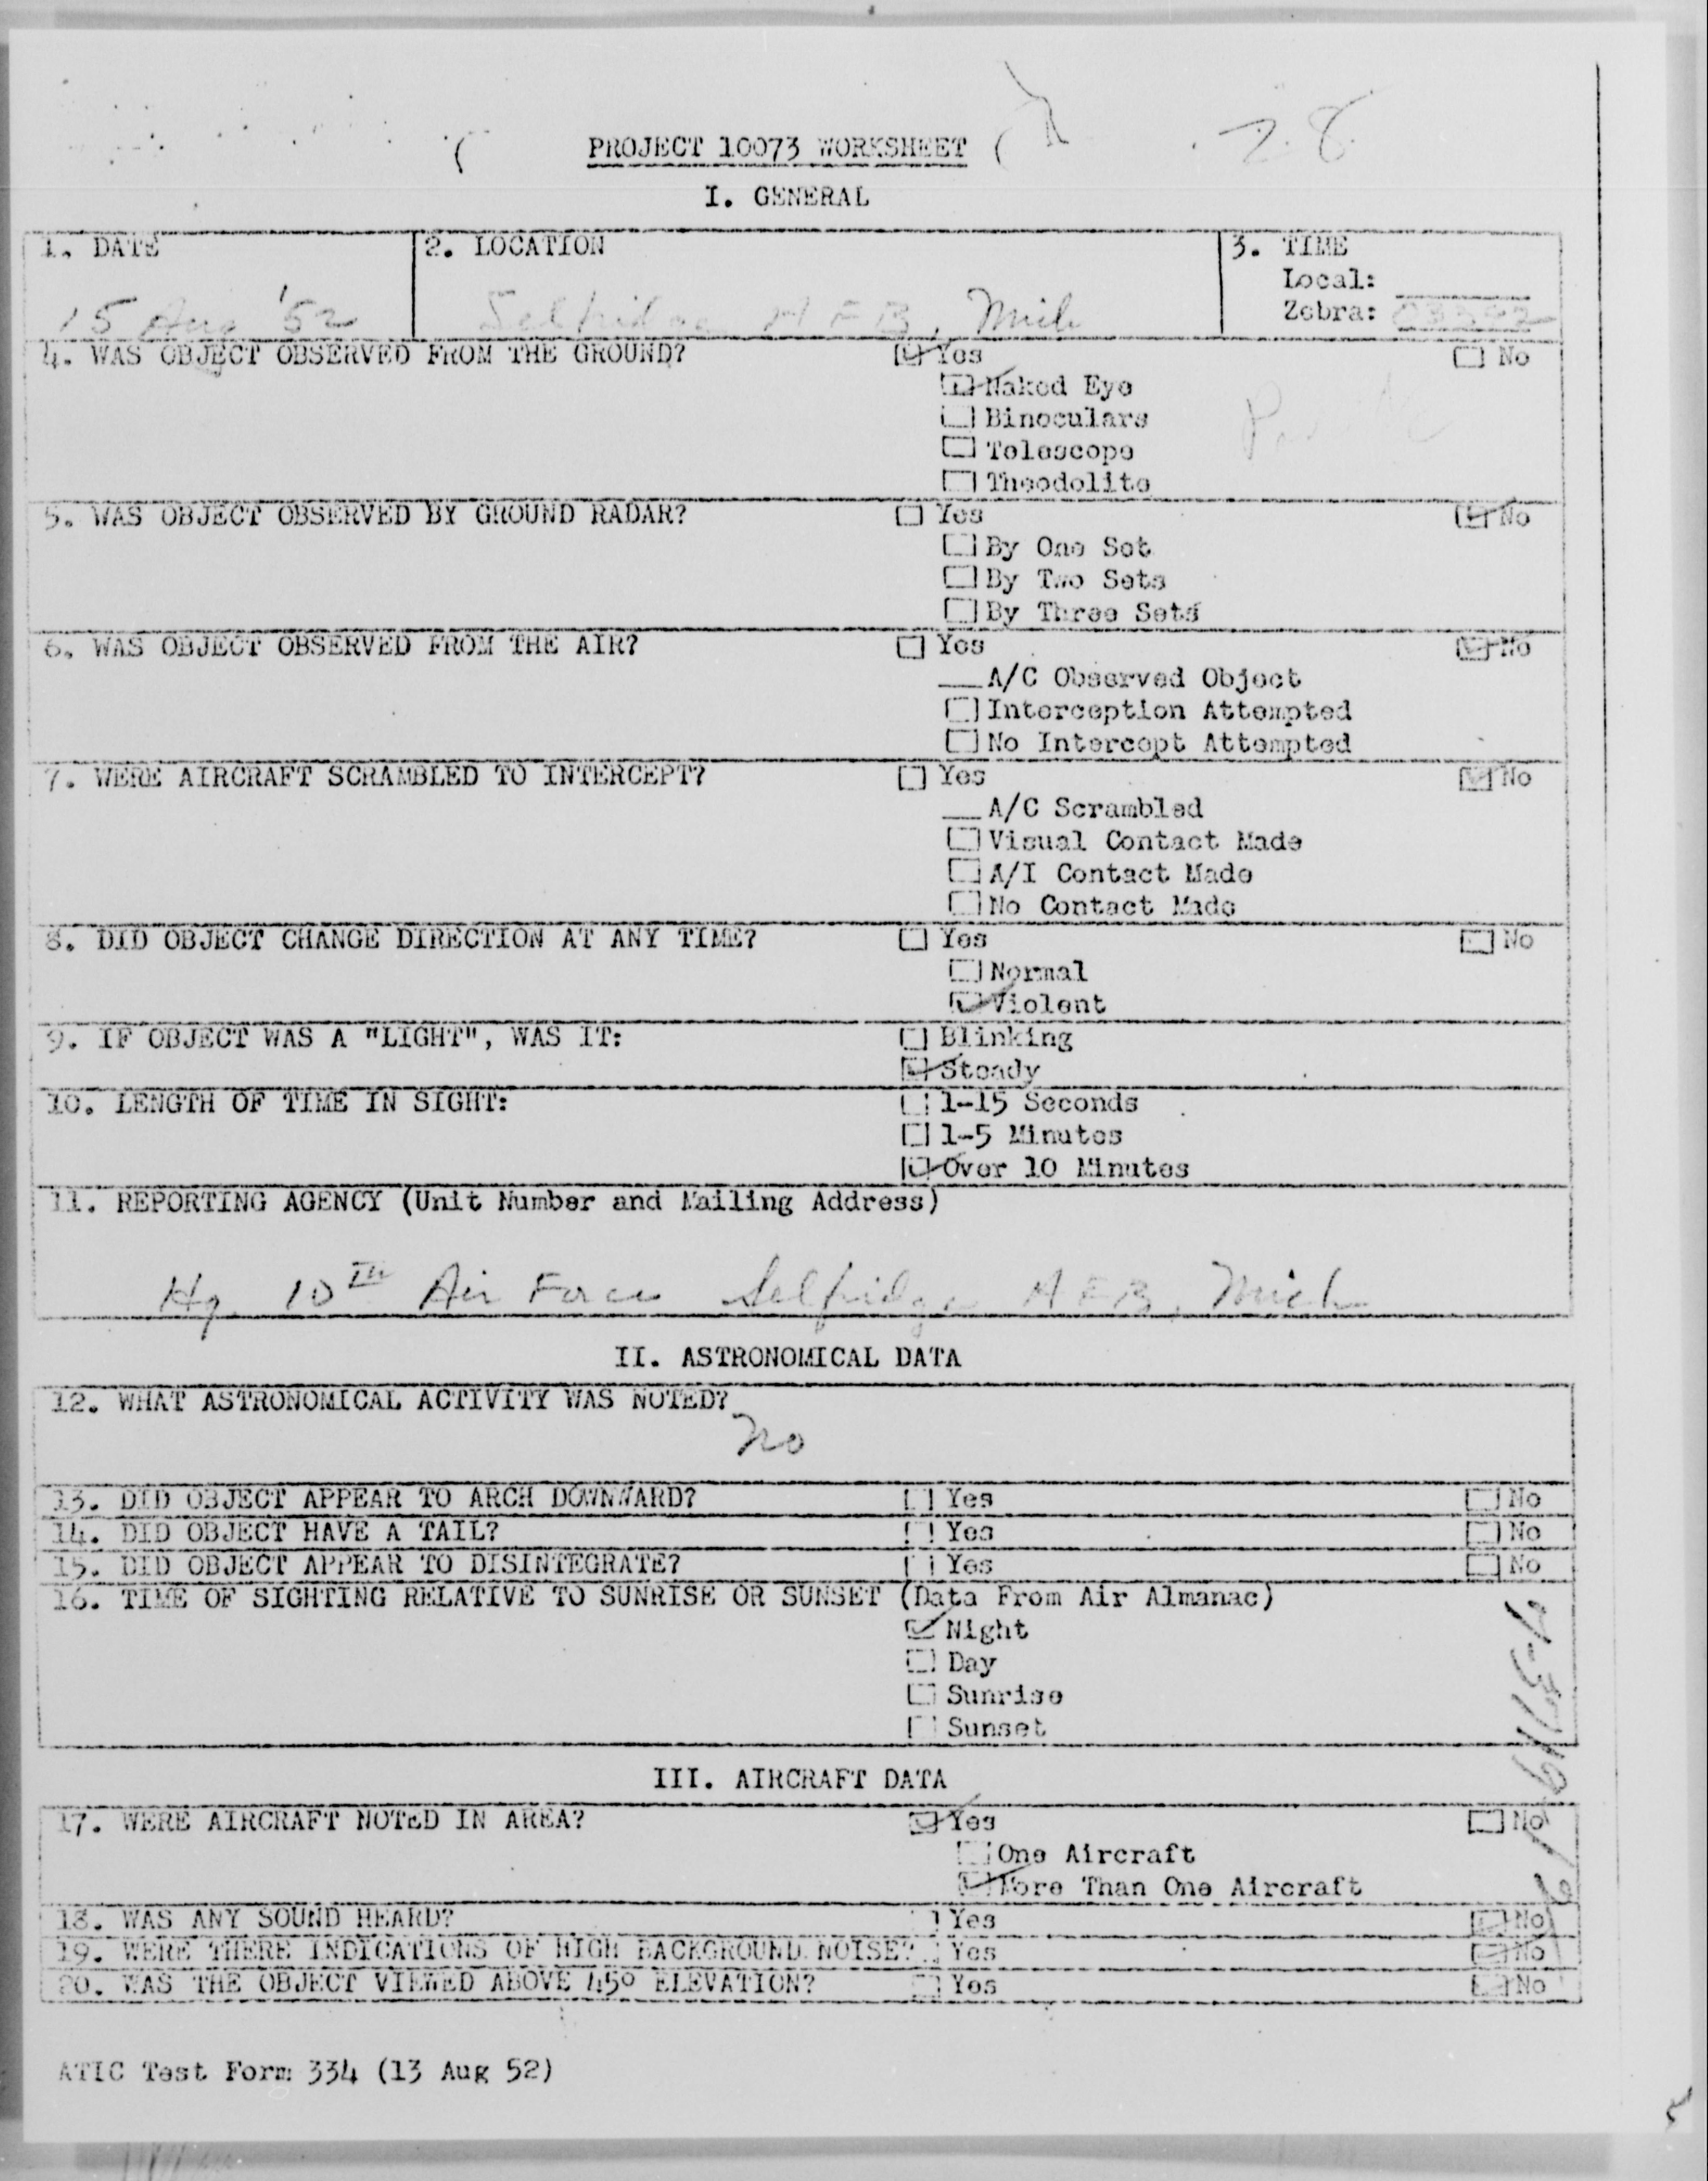 28
PROJECT 10073 WORKSHEET
I. GENERAL
1. DATE 2. LOCATION 3. TIME
Local:
15 Aug '52 Selfridge AFB, Mich Zebra:
4. WAS OBJECT OBSERVED FROM THE GROUND? Yes No
Naked Eye
Binoculars
Telescope
Theodolite
5. WAS OBJECT OBSERVED BY GROUND RADAR? Yes No
By One Set
By Two Sets
By Three Sets
6. WAS OBJECT OBSERVED FROM THE AIR? Yes No
A/C Observed Object
Interception Attempted
No Intercept Attempted
7. WERE AIRCRAFT SCRAMBLED TO INTERCEPT? Yes No
A/C Scrambled
Visual Contact Made
A/I Contact Made
No Contact Made
8. DID OBJECT CHANGE DIRECTION AT ANY TIME? Yes No
Normal
Violent
9. IF OBJECT WAS A "LIGHT", WAS IT: Blinking
Steady
10. LENGTH OF TIME IN SIGHT: 1-15 Seconds
1-5 Minutes
Over 10 Minutes
11. REPORTING AGENCY (Unit Number and Mailing Address)
Hq 10TH Air Force Selfridge AFB, Mich
II. ASTRONOMICAL DATA
12. WHAT ASTRONOMICAL ACTIVITY WAS NOTED?
no
13. DID OBJECT APPEAR TO ARCH DOWNWARD? Yes No
14. DID OBJECT HAVE A TAIL? Yes No
15. DID OBJECT APPEAR TO DISINTEGRATE? Yes No
16. TIME OF SIGHTING RELATIVE TO SUNRISE OR SUNSET (Data From Air Almanac)
Night
Day
Sunrise
Sunset
III. AIRCRAFT DATA
17. WERE AIRCRAFT NOTED IN AREA? Yes No
One Aircraft
More Than One Aircraft
18. WAS ANY SOUND HEARD? Yes No
19. WERE THERE INDICATIONS OF HIGH BACKGROUND NOISE? Yes No
20. WAS THE OBJECT VIEWED ABOVE 45° ELEVATION? Yes No
ATIC Test Form 334 (13 Aug 52)